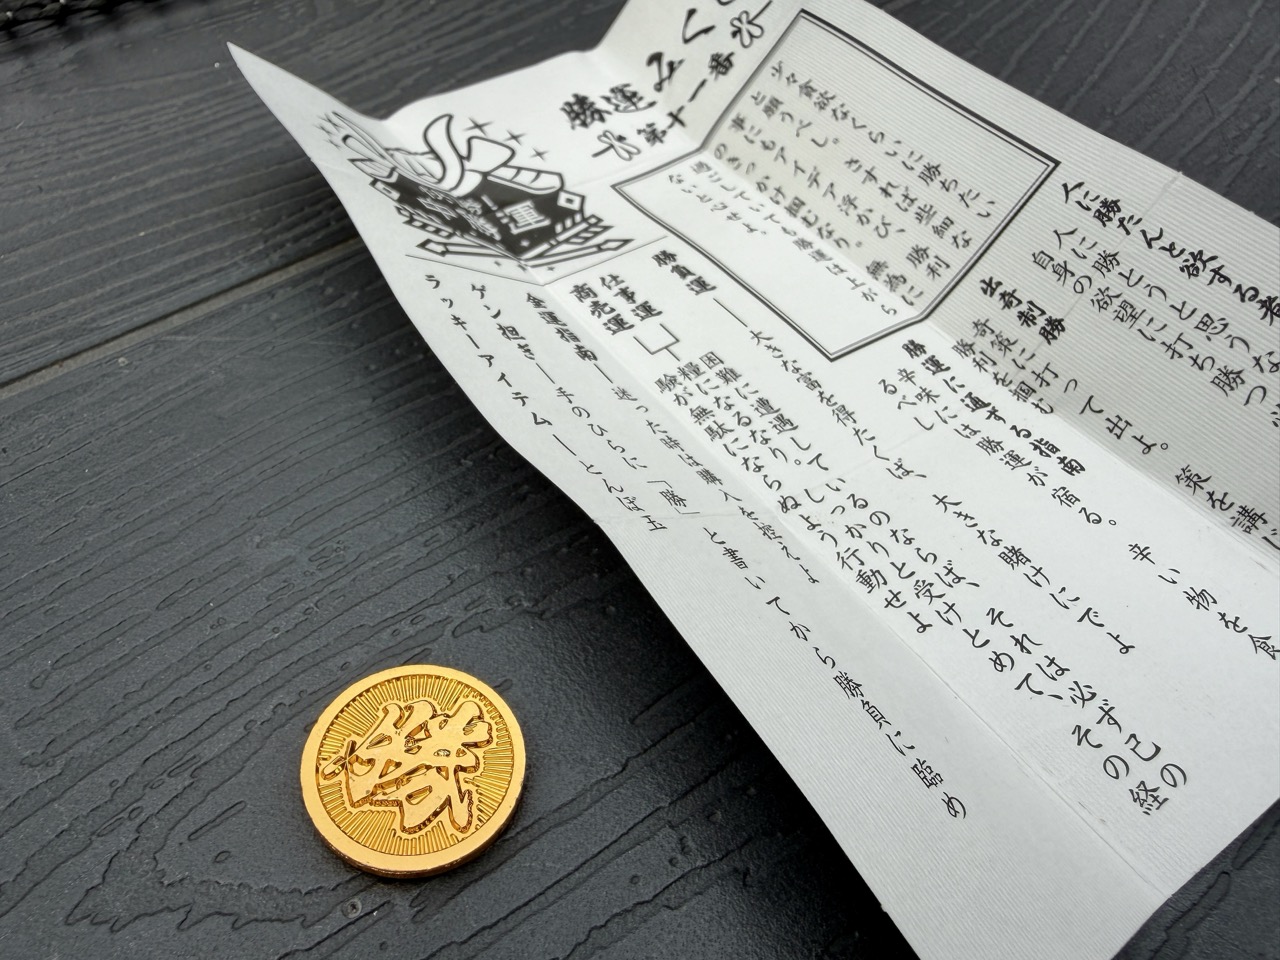 勝運みく
第十一番
少々貪欲なくらいに勝ちたい
と願うべし。さすれば些細な
事にもアイデア浮かび、勝利
のきっかけ掴むなり。無為に
過ごしていても勝運は上がら
ないと心せよ。
人に勝たんと欲する者
人に勝とうと思うな
自身の欲望に打ち勝つ
出奇制勝
奇策に打って出よ。策を講じ
勝利を掴む
勝運に通ずる指南
辛味には勝運が宿る。辛い物を食
るべし
勝負運―大きな富を得たくば、大きな賭けにでよ
仕事運
商売運
困難に遭遇しているのならば、それは必ず己の
糧になるなり。しっかりと受けとめて、その経
験が無駄にならぬよう行動せよ
金運指南―迷った時は購入を控えよ
ゲン担ぎ―手のひらに「勝」と書いてから勝負に臨め
ラッキーアイテム―とんぼ玉
運
勝